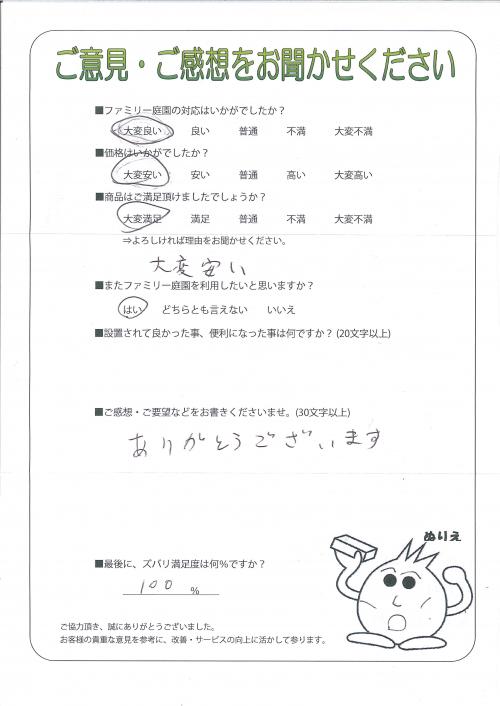 ご意見・ご感想をお聞かせください
■ファミリー庭園の対応はいかがでしたか？
大変良い 良い 普通 不満 大変不満
■価格はいかがでしたか？
大変安い 安い 普通 高い 大変高い
■商品はご満足頂けましたでしょうか？
大変満足 満足 普通 不満 大変不満
⇒よろしければ理由をお聞かせください。
大変安い
■またファミリー庭園を利用したいと思いますか？
はい どちらとも言えない いいえ
■設置されて良かった事、便利になった事は何ですか？(20文字以上)
■ご感想・ご要望などをお書きくださいませ。(30文字以上)
ありがとうございます
ぬりえ
■最後に、ズバリ満足度は何％ですか？
100 %
ご協力頂き、誠にありがとうございました。
お客様の貴重な意見を参考に、改善・サービスの向上に活かして参ります。